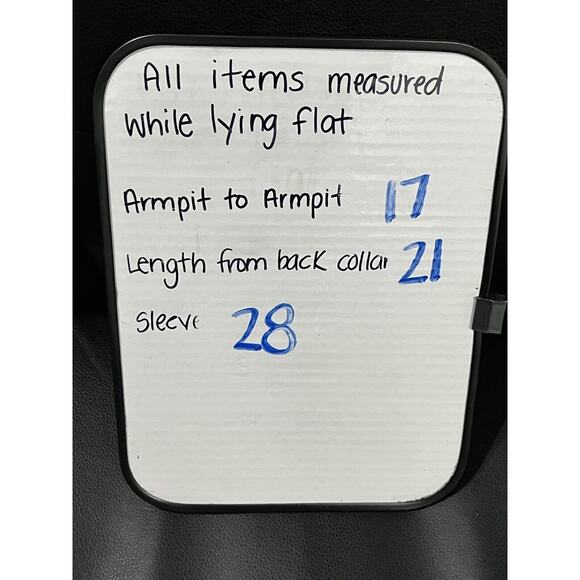 All items measured
while lying flat
Armpit to Armpit 17
Length from back collar 21
Sleeve 28